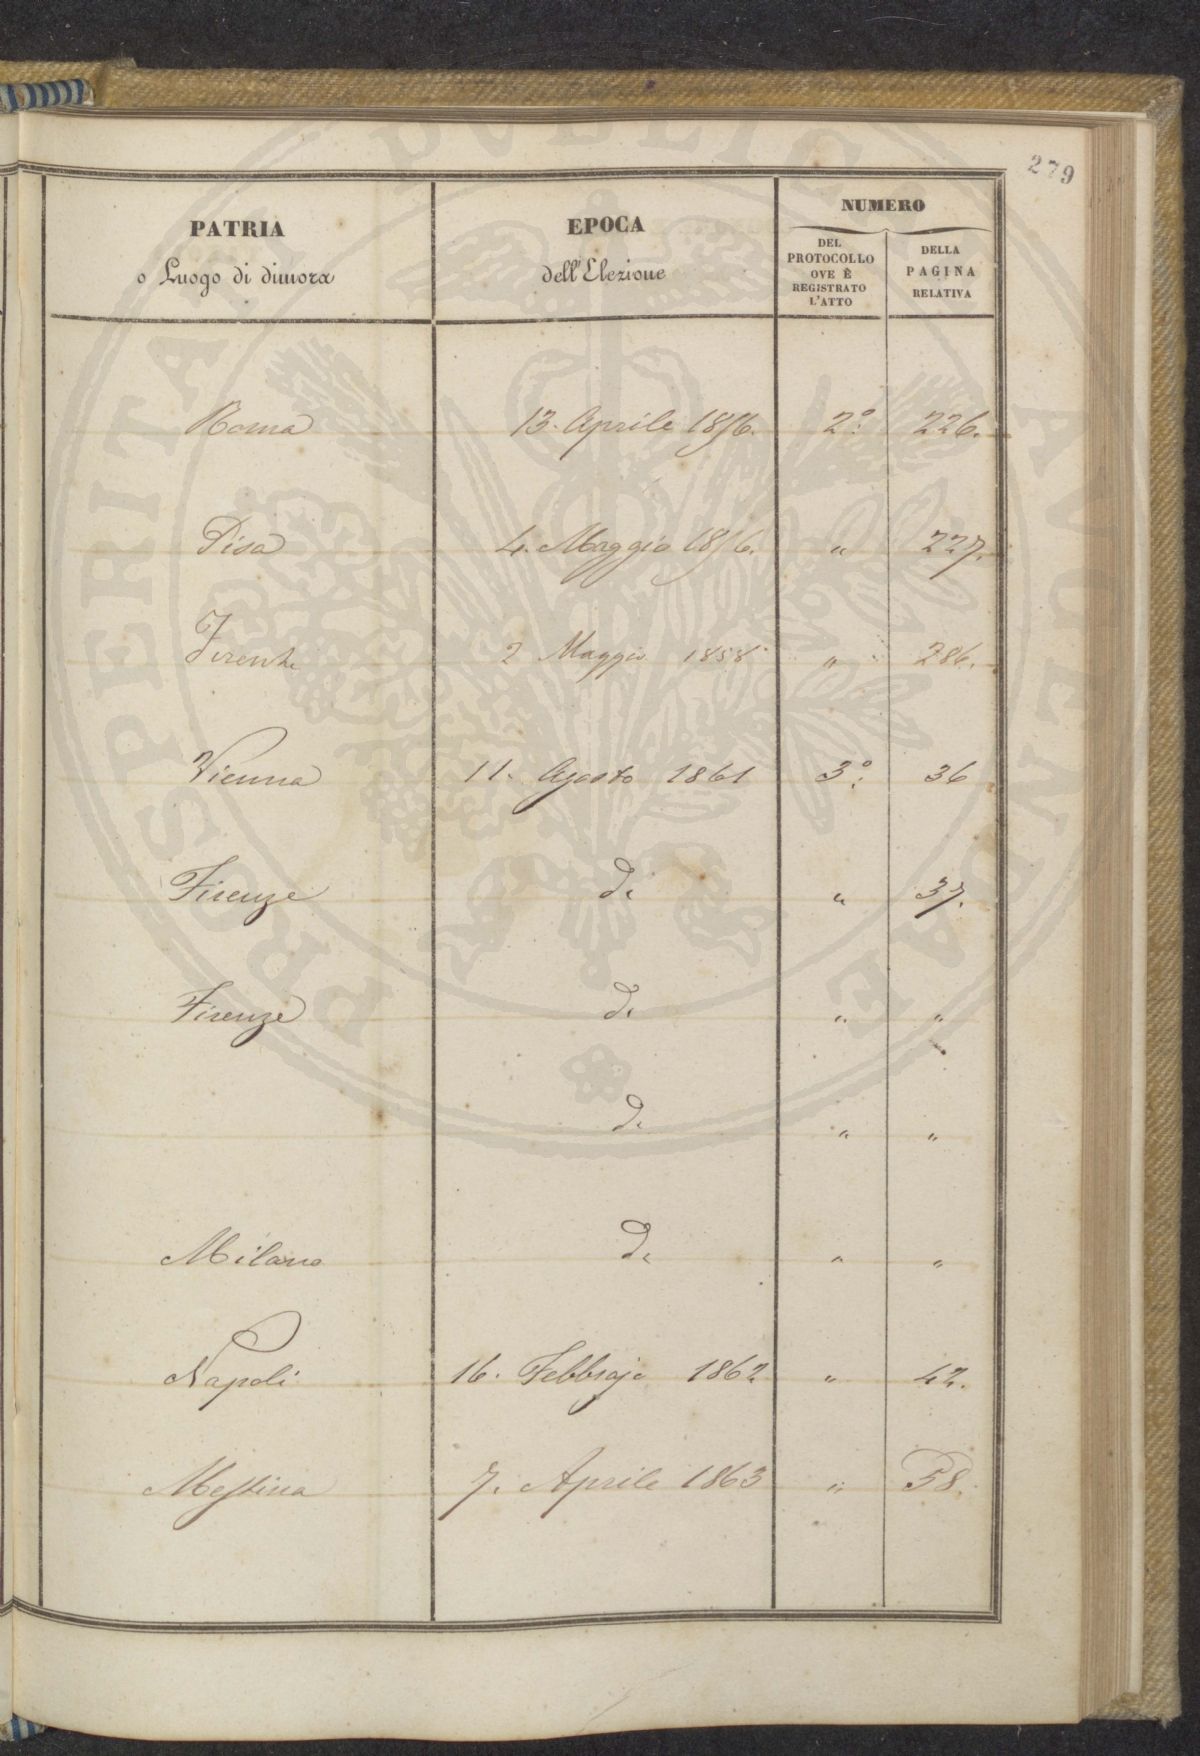 279
PATRIA
o Luogo di dimora
EPOCA
dell'Elezione
NUMERO
DEL
PROTOCOLLO
OVE È
REGISTRATO
L'ATTO
DELLA
PAGINA
RELATIVA
Roma 13. Aprile 1856. 2º. 226.
Pisa 4. Maggio 1856. " 227.
Firenze 2 Maggio 1858 " 286.
Vienna 11. Agosto 1861 3º. 36
Firenze dº " 37.
Firenze dº " "
dº " "
Milano dº " "
Napoli 16. Febbrajo 1862 " 42.
Messina 7. Aprile 1863 " 58.
PROSPERITATI PVBLICAE AVGENDAE